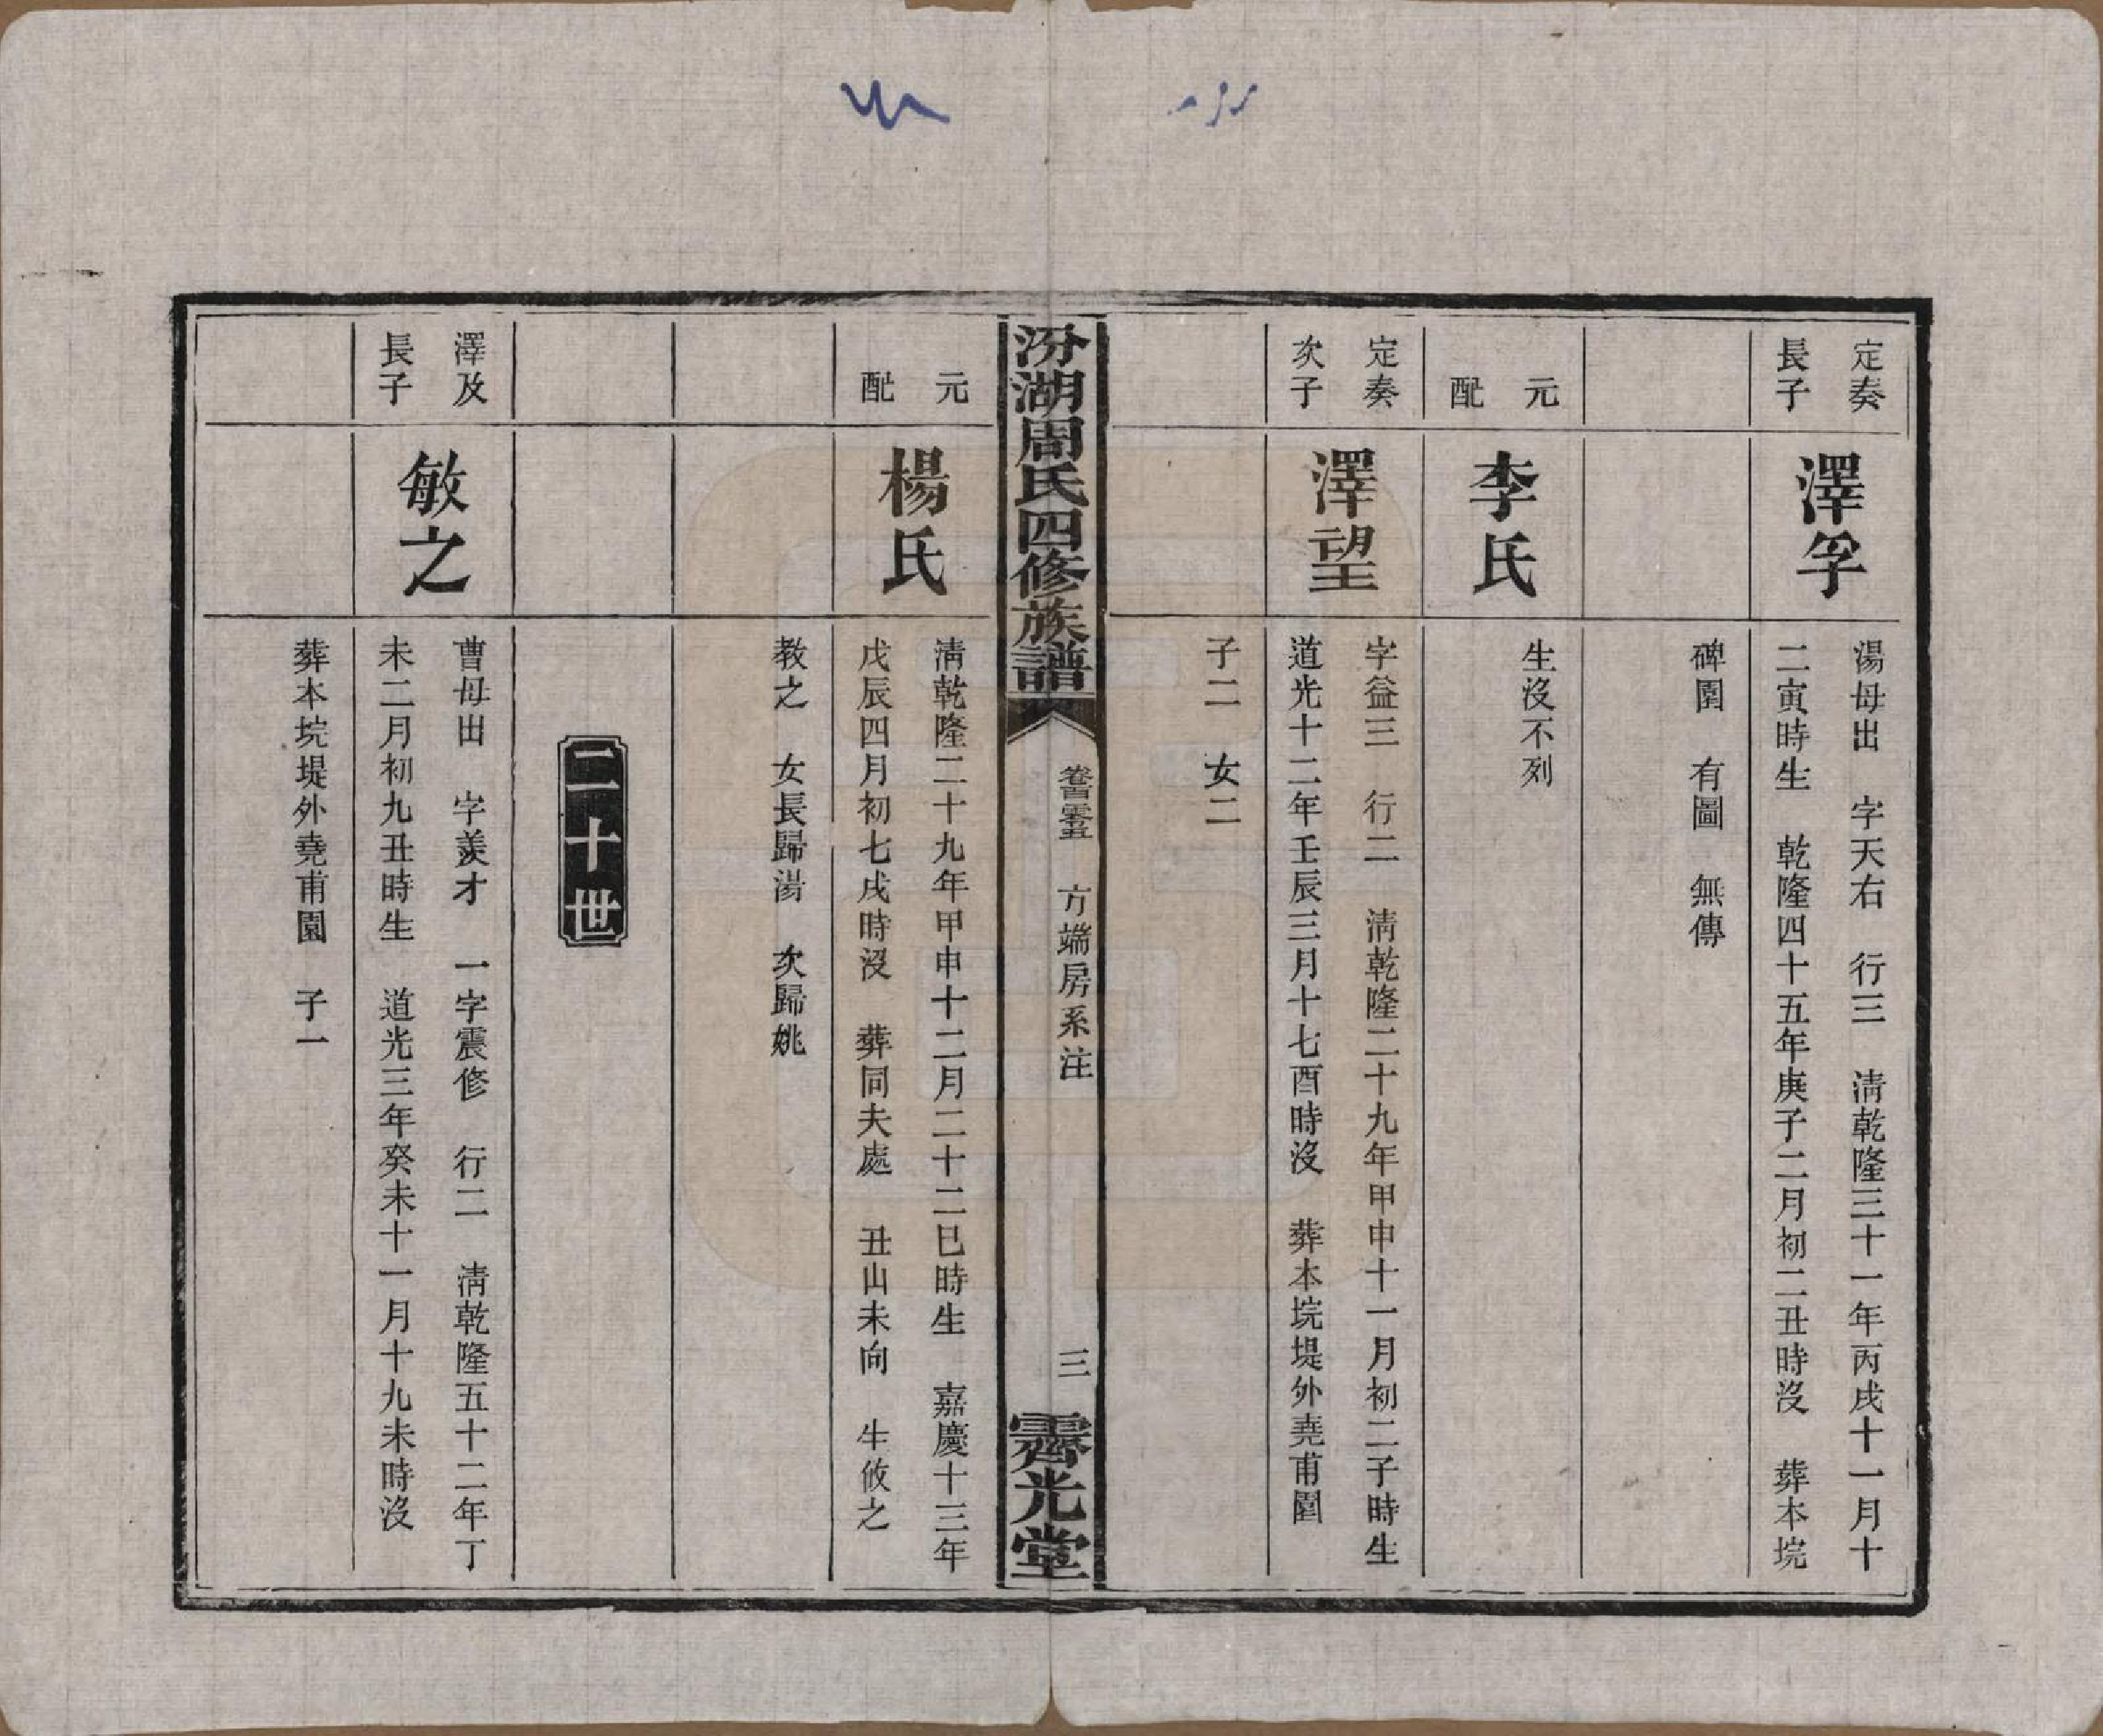 定奏
長子
澤孚
湯母出　字天右　行三　淸乾隆三十一年丙戌十一月十
二寅時生　乾隆四十五年庚子二月初二丑時沒　葬本垸
碑園　有圖　無傳
元
配
李氏
生沒不列
定奏
次子
澤望
字益三　行二　淸乾隆二十九年甲申十一月初二子時生
道光十二年壬辰三月十七酉時沒　葬本垸堤外堯甫園
子二　女二
汾湖周氏四修族譜
卷　方端房系注
三
霽光堂
元
配
楊氏
淸乾隆二十九年甲申十二月二十二巳時生　嘉慶十三年
戊辰四月初七戌時沒　葬同夫處　丑山未向　生攸之
教之　女長歸湯　次歸姚
二十世
澤及
長子
敏之
曹母出　字羡才　一字震修　行二　淸乾隆五十二年丁
未二月初九丑時生　道光三年癸未十一月十九未時沒
葬本垸堤外堯甫園　子一